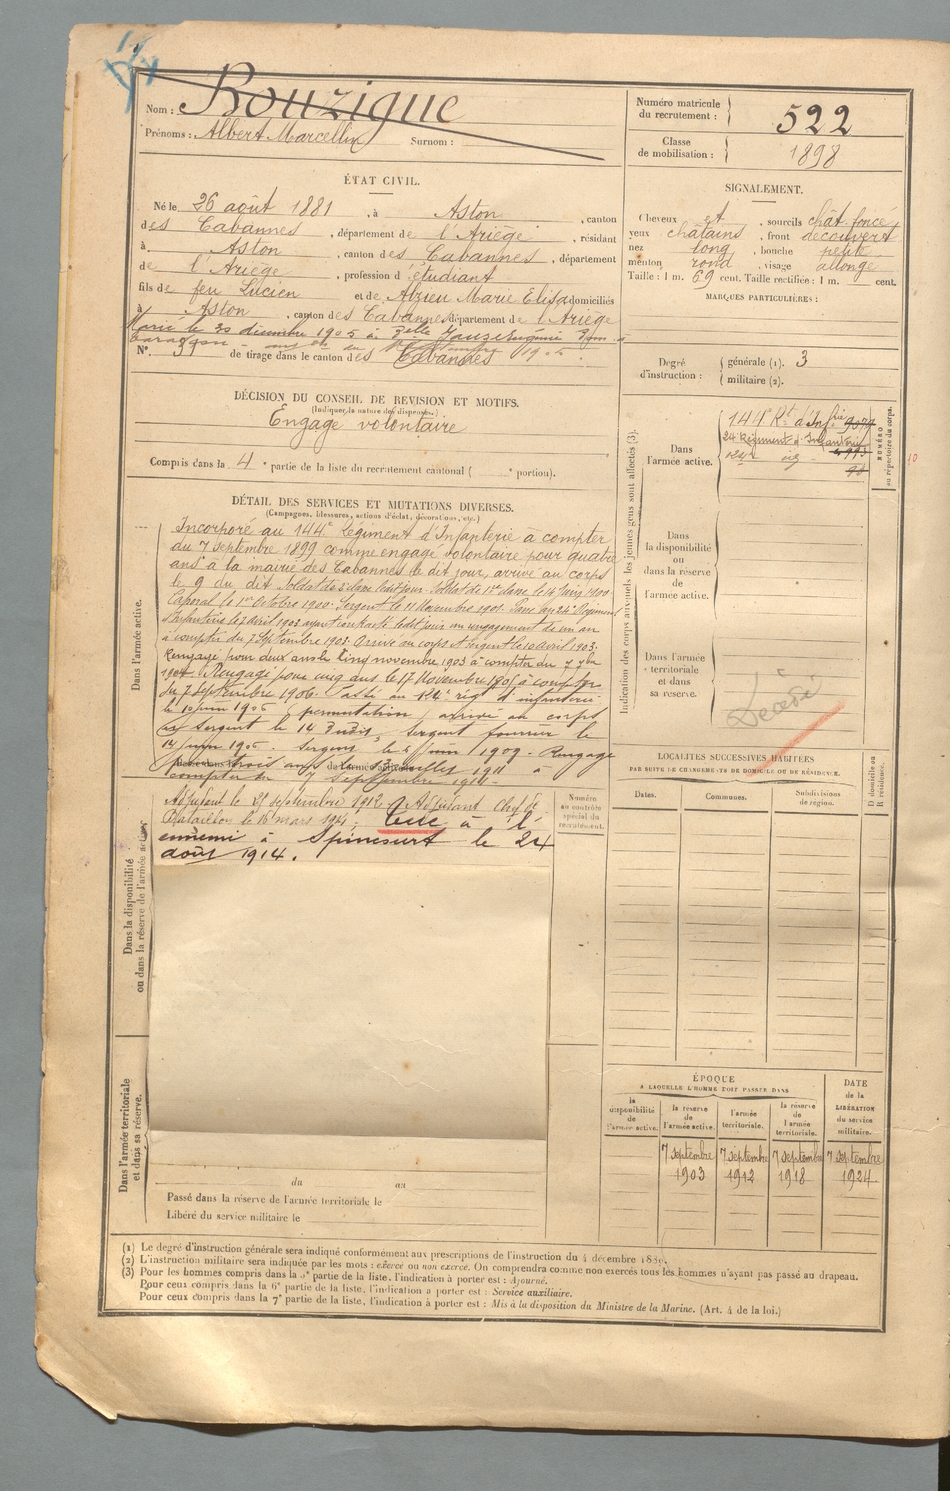 Nom : Rouzigue
Prénoms : Albert Marcellin Surnom :
Numéro matricule du recrutement : 522
Classe de mobilisation : 1898
ÉTAT CIVIL.
Né le 26 août 1881, à Aston, canton
des Cabannes, département de l'Ariège, résidant
à Aston, canton des Cabannes, département
de l'Ariège, profession d'étudiant
fils de feu Lucien et de Alzieu Marie Elisa domiciliés
à Aston, canton des Cabannes département de l'Ariège
Marié le 30 décembre 1905 à
N° 39 de tirage dans le canton des Cabannes
SIGNALEMENT.
Cheveux et, sourcils chât. foncé,
yeux chatains, front découvert
nez long, bouche petite,
menton rond, visage allongé
Taille : 1 m. 69 cent. Taille rectifiée : 1 m. cent.
MARQUES PARTICULIÈRES :
Degré d'instruction : générale (1). 3
militaire (2).
DÉCISION DU CONSEIL DE REVISION ET MOTIFS.
(Indiquer la nature des dispenses.)
Engagé volontaire
Compris dans la 4e partie de la liste du recrutement cantonal ( e portion).
Indication des corps auxquels les jeunes gens sont affectés (3).
NUMÉRO au répertoire du corps.
Dans l'armée active.
144e Rt d'Infrie
24 Régiment d'Infanterie
Dans la disponibilité ou dans la réserve de l'armée active.
Dans l'armée territoriale et dans sa réserve.
Décédé
DÉTAIL DES SERVICES ET MUTATIONS DIVERSES.
(Campagnes, blessures, actions d'éclat, décorations, etc.)
Dans l'armée active.
Incorporé au 144e Régiment d'Infanterie à compter
du 7 septembre 1899 comme engagé volontaire pour quatre
ans à la mairie des Cabannes le dit jour, arrivé au corps
le 9 du dit Soldat de 2e classe le dit jour. Soldat de 1re classe le 1900
Caporal le 1er Octobre 1900. Sergent le 11 Novembre 1901. Passé au 24e Régiment
d'Infanterie le 7 Avril 1903 le dit jour un engagement de un an
à compter du 7 Septembre 1903. Arrivé au corps et Sergent le 10 avril 1903.
Rengagé pour deux ans le cinq novembre 1903 à compter du 7 7bre
1904. Rengagé pour cinq ans le 17 Novembre 1905 à compter
du 7 septembre 1906. Passé au 124e régt d'infanterie
le 10 juin 1906 (permutation) arrivé au corps
et sergent le 14 Sergent fourrier le
Sergent le 1909. Rengagé
pour trois ans le juillet 1911 à
compter du 7 Septembre 1911.
Adjudant le 29 septembre 1912. Adjudant Chef de
Bataillon le 16 mars 1914. Tué à l'
ennemi à Spincourt le 24
août 1914.
Dans la disponibilité ou dans la réserve de l'armée active
Dans l'armée territoriale et dans sa réserve.
Numéro au contrôle spécial du recrutement.
LOCALITÉS SUCCESSIVES HABITÉES
PAR SUITE DE CHANGEMENTS DE DOMICILE OU DE RÉSIDENCE.
Dates. Communes. Subdivisions de région. D domicile ou R résidence.
ÉPOQUE
A LAQUELLE L'HOMME DOIT PASSER DANS
la disponibilité de l'armée active. la réserve de l'armée active. l'armée territoriale. la réserve de l'armée territoriale.
DATE de la LIBÉRATION du service militaire.
7 septembre 1903 7 septembre 1912 7 septembre 1918 7 septembre 1924
du au
Passé dans la réserve de l'armée territoriale le
Libéré du service militaire le
(1) Le degré d'instruction générale sera indiqué conformément aux prescriptions de l'instruction du 4 décembre 1889.
(2) L'instruction militaire sera indiquée par les mots : exercé ou non exercé. On comprendra comme non exercés tous les hommes n'ayant pas passé au drapeau.
(3) Pour les hommes compris dans la 5e partie de la liste, l'indication à porter est : Ajourné.
Pour ceux compris dans la 6e partie de la liste, l'indication à porter est : Service auxiliaire.
Pour ceux compris dans la 7e partie de la liste, l'indication à porter est : Mis à la disposition du Ministre de la Marine. (Art. 4 de la loi.)